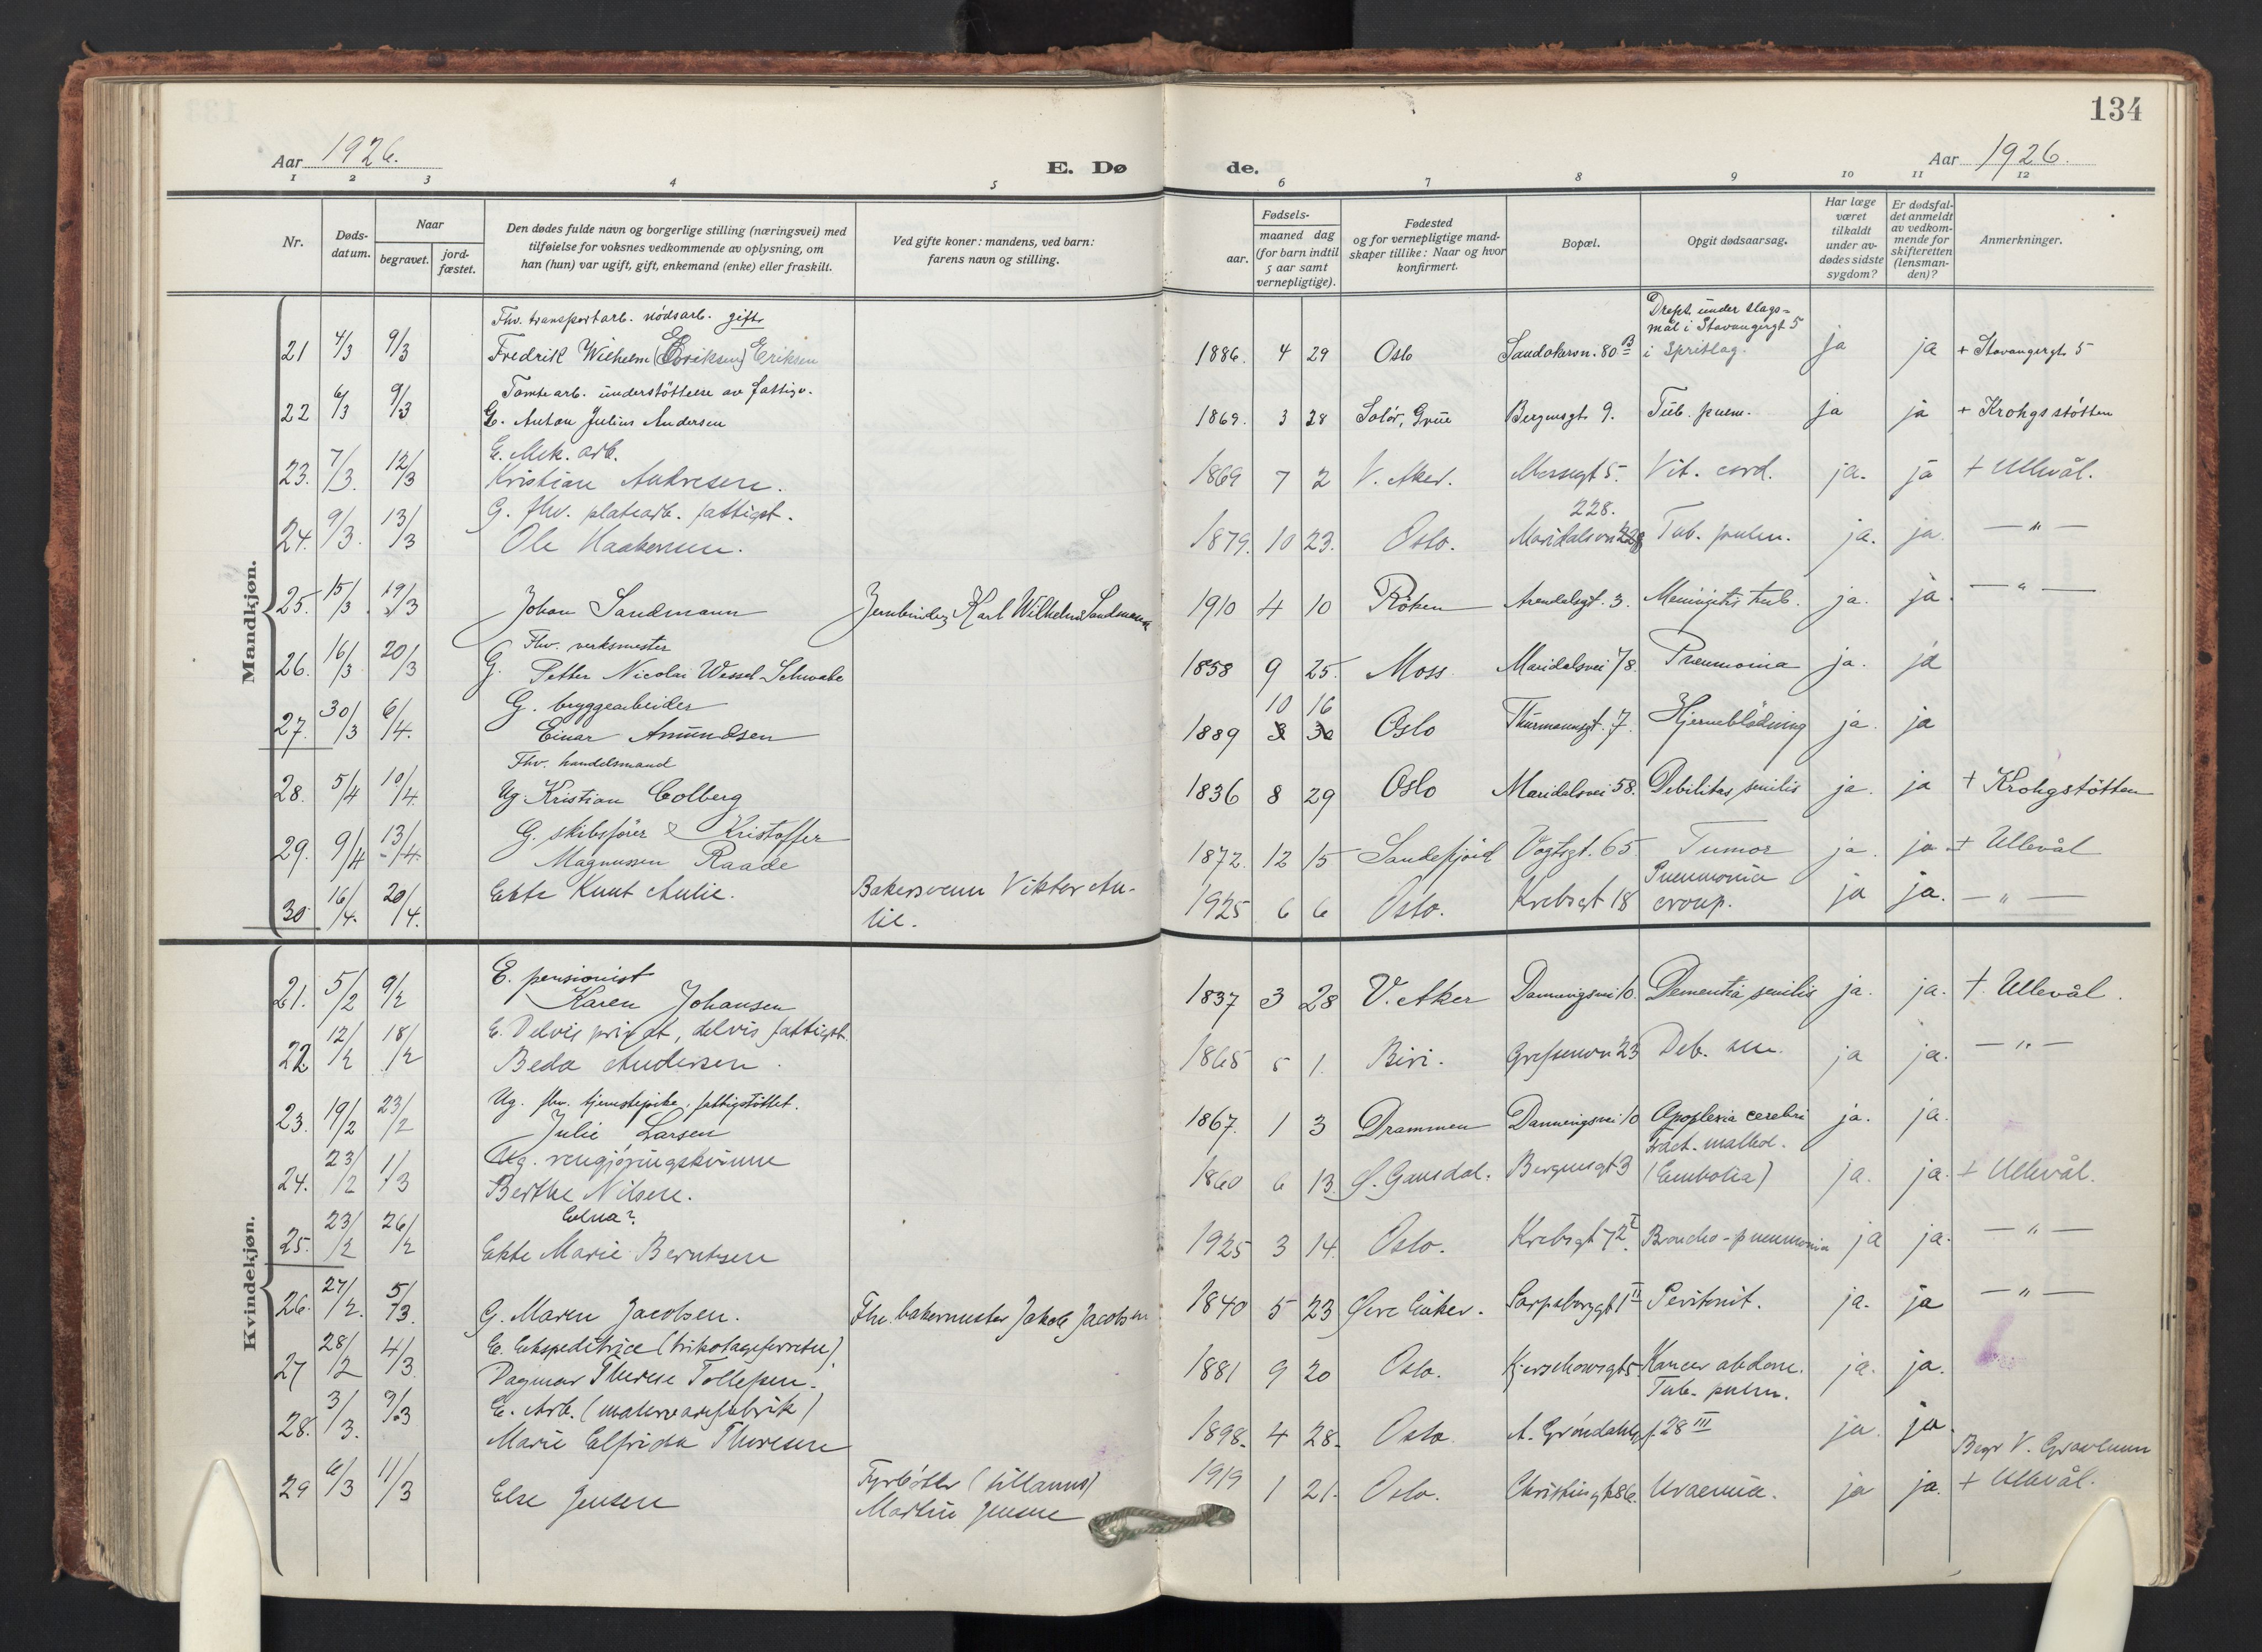 134
Aar 1926.
E. Dø
de.
Aar 1926.
1 2 3 4 5 6 7 8 9 10 11 12
Nr.
Døds-
datum.
Naar
begravet.
jord-
fæstet.
Den dødes fulde navn og borgerlige stilling (næringsvei) med
tilføielse for voksnes vedkommende av oplysning, om
han (hun) var ugift, gift, enkemand (enke) eller fraskilt.
Ved gifte koner: mandens, ved barn:
farens navn og stilling.
Fødsels-
aar.
maaned dag
(for barn indtil
5 aar samt
vernepligtige).
Fødested
og for vernepligtige mand-
skaper tillike: Naar og hvor
konfirmert.
Bopæl.
Opgit dødsaarsag.
Har læge
været
tilkaldt
under av-
dødes sidste
sygdom?
Er dødsfal-
det anmeldt
av vedkom-
mende for
skifteretten
(lensman-
den)?
Anmerkninger.
Mandkjøn.
Fhv. transportarb. nødsarb. gift
Drept under slags-
mål i Stavangergt 5
21 4/3 9/3 Fredrik Wilhelm (Eeriksen) Eriksen 1886. 4 29 Oslo Sandakervn. 80 B i Spritlag. ja ja + Stavangergt 5
Tomtearb. understöttelse av fattigv.
22 6/3 9/3 G. Anton Julius Andersen 1869. 3 28 Solör, Grue Bergensgt. 9. Tub. pulm. ja ja + Krohgsstötten
E. Mek. arb.
23. 7/3. 12/3 Kristian Andresen. 1869 7 2 V. Aker. Mossegt 5. Vit. cord. ja. ja + Ullevål.
G. fhv. platearb. fattigst.
228.
24. 9/3. 13/3 Ole Haakensen. 1879. 10 23. Oslo. Maridalsvn 228 Tub. pulm. ja. ja. — " —
25. 15/3. 19/3 Johan Sandmann Jernbinder Karl Wilhelm Sandmann 1910 4 10 Röken Arendalsgt. 3. Meningitis tub. ja. ja. — " —
Fhv. verksmester
26. 16/3 20/3 G. Petter Nicolai Wessel Schwabe 1858 9 25. Moss Maridalsvei 78. Pneumonia ja. ja
G. bryggearbeider
10 16
27. 30/3 6/4. Einar Amundsen 1889 3 30 Oslo Thurmannsgt. 7. Hjerneblödning ja. ja
Fhv. handelsmand
28. 5/4 10/4. Ug. Kristian Colberg 1836 8 29 Oslo Maridalsvei 58. Debilitas senilis ja. ja + Krohgstötten
29. 9/4 13/4. G. skibsfører Kristoffer
Magnussen Raade 1872. 12 15 Sandefjord Vogtsgt. 65 Tumor ja. ja. + Ullevål
30 16/4. 20/4. Ekte Knut Aulie. Bakersvenn Viktor Au-
lie. 1925 6 6 Oslo. Krebsgt 18 Pneumonia
croup. ja ja. — " —
Kvindekjøn.
E. pensionist
21. 5/2 9/2 Karen Johansen 1837 3 28 V. Aker Dannevigsvei 10. Dementia senilis ja. ja. + Ullevål.
E. Delvis privat, delvis fattigst.
22 12/2 18/2 Beda Andersen. 1865 5 1. Biri. Grefsenvn 23 Deb. sen. ja ja. — " —
Ug. fhv. tjenestepike, fattigstöttet.
23. 19/2 23/2 Julie Larsen 1867. 1 3 Drammen Dannevigsvei 10 Apoplexia cerebri ja. ja.
Ug. rengjøringskvinne
Fract. malleol.
24. 23/2 1/3 Berthe Nilsen. 1860 6 13. Ø. Gausdal. Bergensgt 3 (Embolia) ja. ja. + Ullevål.
Edna?
25. 23/2 26/2 Ekte Marie Berntsen 1925 3 14. Oslo. Krebsgt 7 2 I. Broncho-pneumonia ja ja. — " —
26. 27/2. 5/3. G. Maren Jacobsen. Fhv. bakermester Jakob Jacobsen 1840 5 23 Øvre Eiker. Sarpsborggt 1 II Peritonit. ja. ja — " —
E. Ekspeditrice (trikotageforretn.)
27 28/2 4/3. Dagmar Therese Tollefsen. 1881 9 20 Oslo. Kierschowsgt 5. Kancer abdom. ja. ja.
E. Arb. (malervarefabrik)
Tub. pulm.
28. 3/3. 9/3 Marie Elfrida Thoresen 1898. 4 28. Oslo A. Gröndahlsg. 28 III ja. ja.
Begr V. Gravlunn
29 6/3 11/3 Else Jensen Fyrböter (tillands)
Martin Jensen 1919 1 21. Oslo. Christiesgt 36. Uraemia. ja ja. + Ullevål.